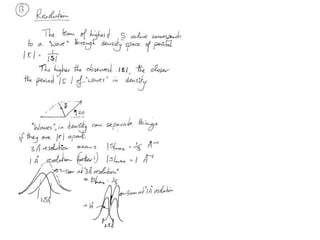 ⑬ Resolution
The term of highest S value corresponds
to a "wave" through density space of period
|r| = 1/|S|
The higher the observed |S|, the closer
the period |r| of "waves" in density
"Waves" in density can separate things
if they are |r| apart.
3 Å resolution means |S|max = 1/3 Å⁻¹
1 Å resolution (better!) |S|max = 1 Å⁻¹
sum at 3Å resolution
1.5Å
sum at 1Å resolution
1.5Å